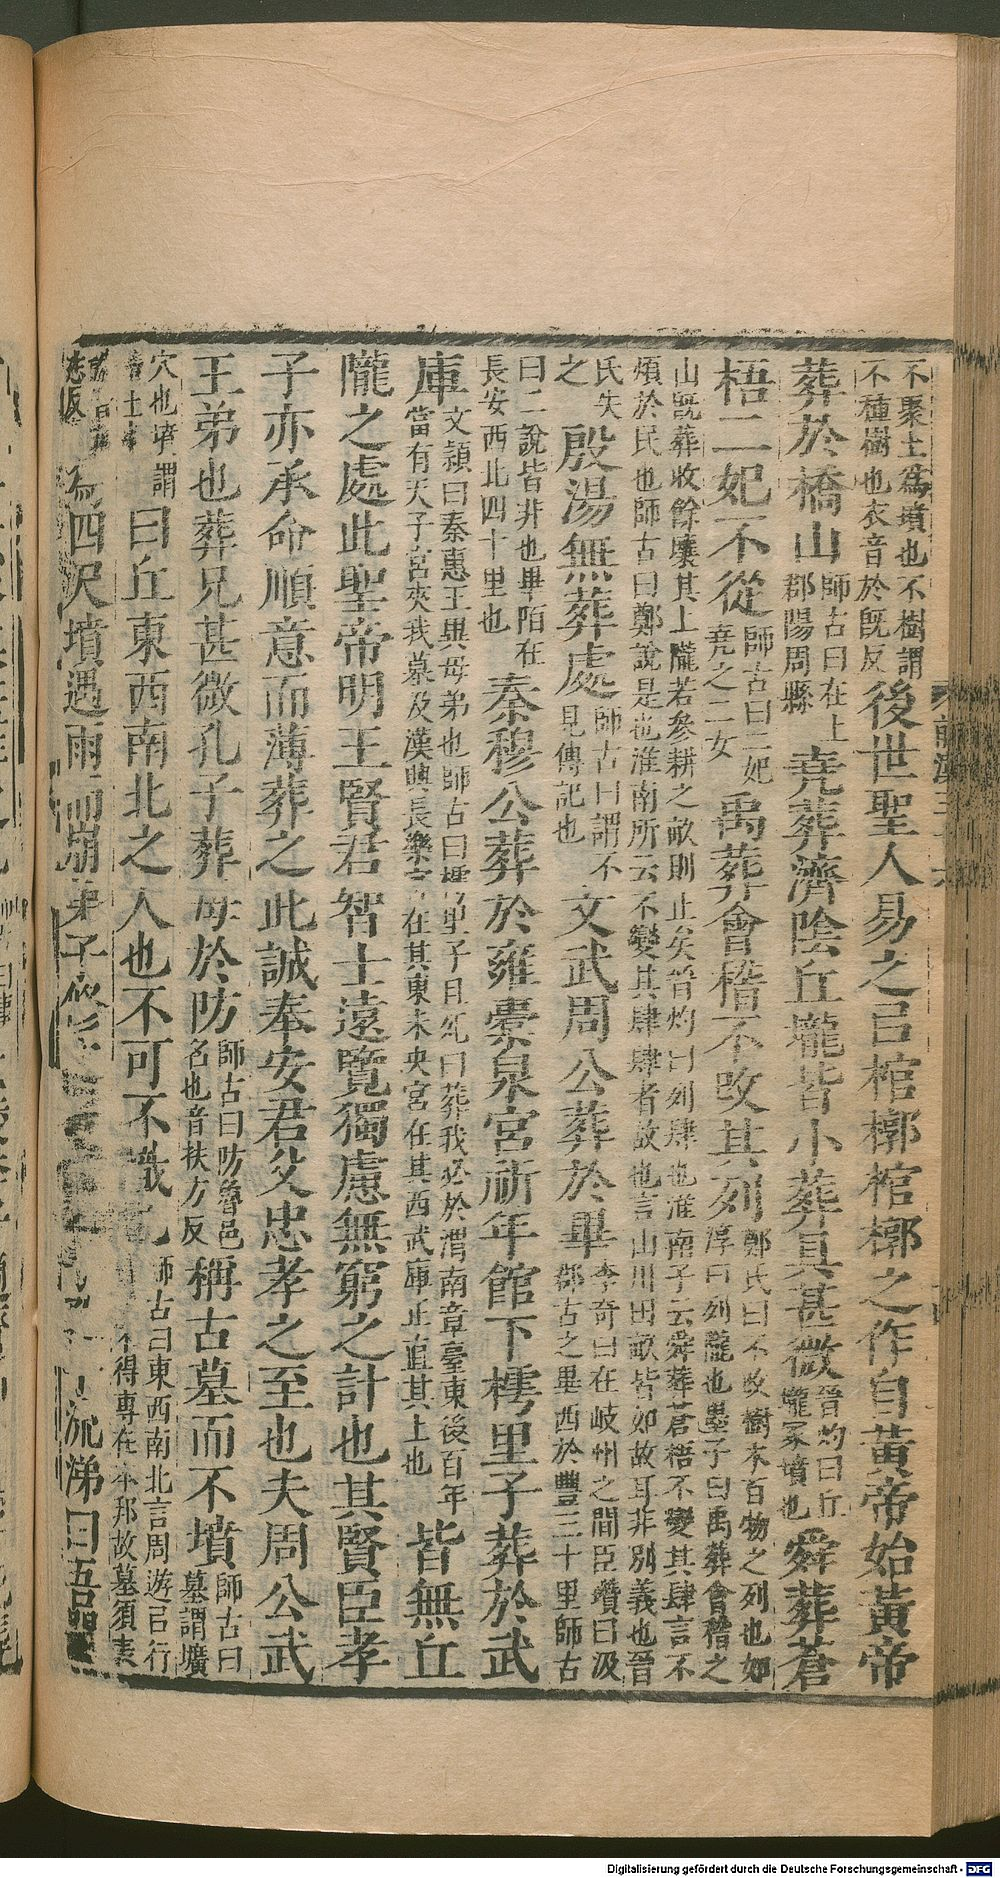 不聚土爲墳也不樹謂不種樹也衣音於旣反後世聖人易之㠯棺槨棺槨之作自黃帝始黃帝
葬於橋山師古曰在上郡陽周縣堯葬濟陰丘壠皆小葬具甚微晉灼曰丘壠冢墳也舜葬蒼
梧二妃不從師古曰二妃堯之二女禹葬會稽不改其列鄭氏曰不改樹木百物之列也如淳曰列隴也墨子曰禹葬會稽之
山旣葬收餘壤其上隴若參耕之畝則止矣晉灼曰列肆也淮南子云舜葬蒼梧不變其肆言不煩於民也師古曰鄭說是也淮南所云不變其肆肆者故也言山川田畝皆如故耳非別義也晉
氏失之殷湯無葬處師古曰謂不見傳記也文武周公葬於畢李奇曰在岐州之間臣瓚曰汲郡古之畢西於豐三十里師古
曰二說皆非也畢陌在長安西北四十里也秦穆公葬於雍橐泉宮祈年館下樗里子葬於武
庫文頴曰秦惠王異母弟也師古曰樗里子且死曰葬我必於渭南章臺東後百年當有天子宮夾我墓及漢興長樂在其東未央宮在其西武庫正直其上也皆無丘
隴之處此聖帝明王賢君智士遠覽獨慮無窮之計也其賢臣孝
子亦承命順意而薄葬之此誠奉安君父忠孝之至也夫周公武
王弟也葬兄甚微孔子葬母於防師古曰防魯邑名也音扶方反稱古墓而不墳師古曰墓謂壙
穴也墳謂土曰丘東西南北之人也不可不識師古曰東西南北言周遊㠯行不得專在本邦故墓須表
爲四尺墳遇雨而崩弟子流涕曰吾聞